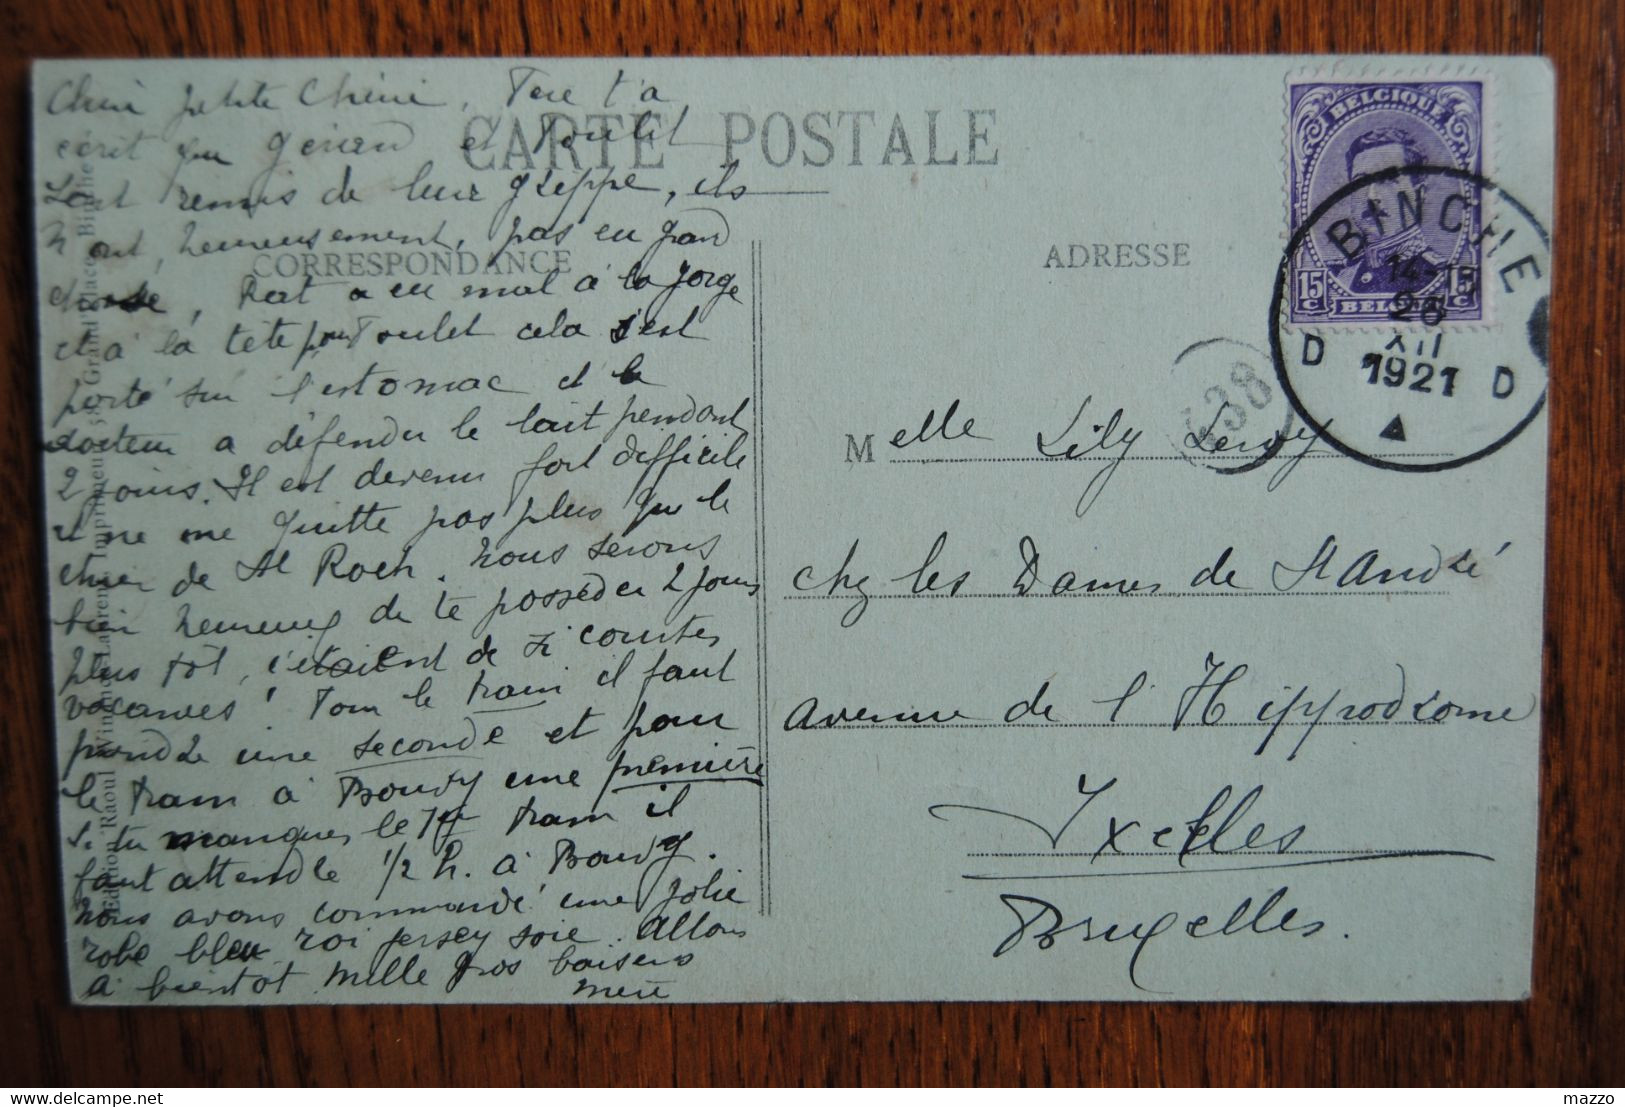 petite Chérie, Père t'a
écrit que Gérard et Poulet
sont remis de leur grippe, ils
n'ont, heureusement, pas eu grand
chose, a eu mal à la gorge
et à la tête pour Poulet cela s'est
porté sur l'estomac et le
docteur a défendu le lait pendant
2 jours. Il est devenu fort difficile
et ne me quitte pas plus que le
chien de St Roch. Nous serons
bien heureux de te posséder 2 jours
plus tôt, c'étaient de si courtes
vacances! Pour le train il faut
prendre une seconde et pour
le tram à Bouvy une première
Si tu manques le 1er tram il
faut attendre 1/2 h. à Bouvy.
Nous avons commandé une jolie
robe bleu roi jersey soie. Allons
à bientôt mille gros baisers
mère
CARTE POSTALE
CORRESPONDANCE
ADRESSE
Melle Lily Leroy
chez les Dames de St André
avenue de l'Hippodrome
Ixelles
Bruxelles.
BELGIQUE
15 C 15 C
BELGIË
BINCHE
14-15
26
XII
1921
D D
438
Edition Raoul Winance-Laurent, Imprimeur, Grand'Place, Binche
mazzo